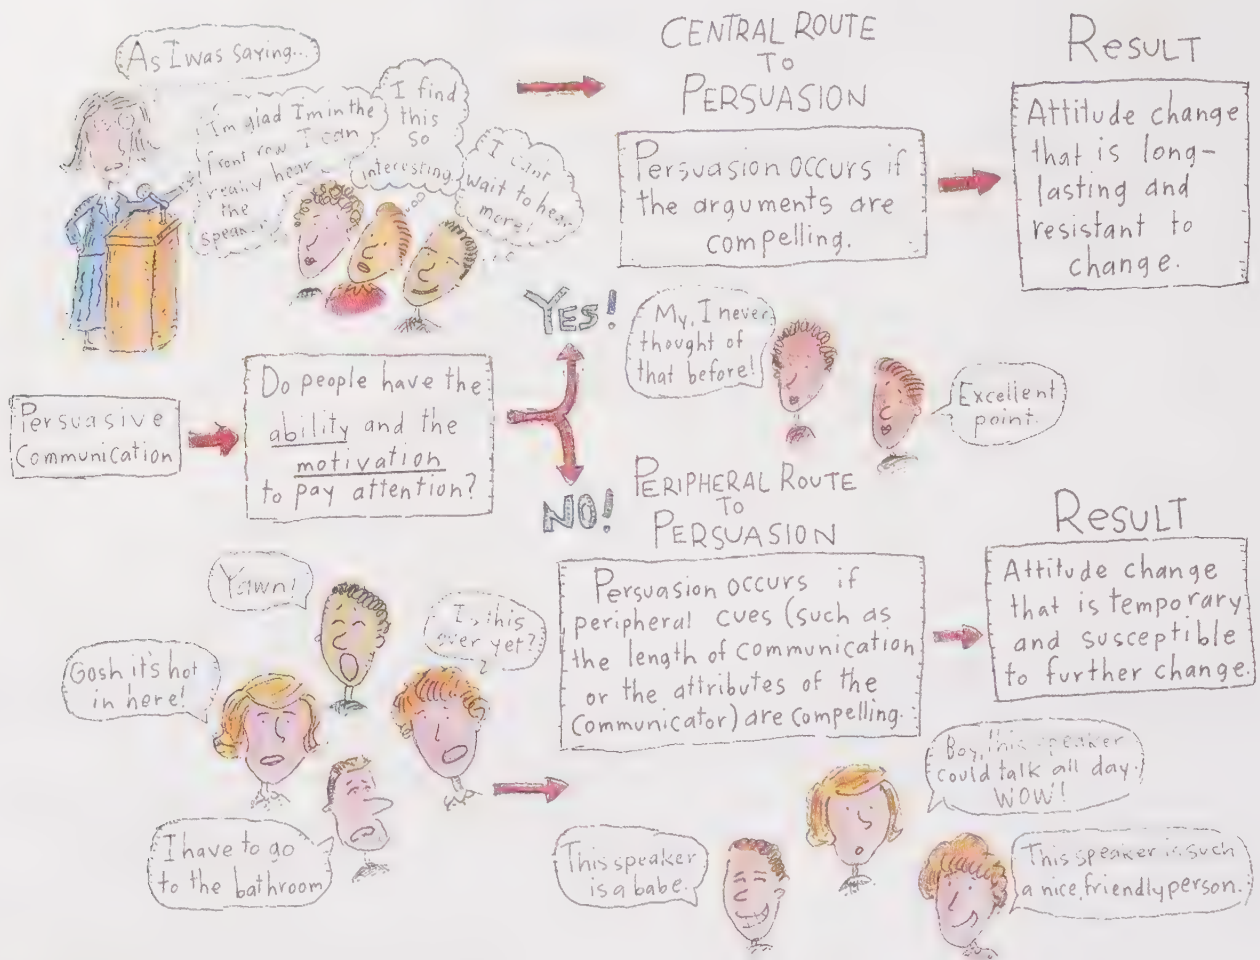 As I was saying...
I'm glad I'm in the
front row. I can
really hear
the
I find
this
so
interesting.
I can't
wait to hear
more!
CENTRAL ROUTE
TO
PERSUASION
Persuasion occurs if
the arguments are
compelling.
RESULT
Attitude change
that is long-
lasting and
resistant to
change.
Persuasive
Communication
Do people have the
ability and the
motivation
to pay attention?
YES!
NO!
My, I never
thought of
that before!
Excellent
point.
PERIPHERAL ROUTE
TO
PERSUASION
Persuasion occurs if
peripheral cues (such as
the length of communication
or the attributes of the
communicator) are compelling.
RESULT
Attitude change
that is temporary
and susceptible
to further change.
Yawn!
Is this
over yet?
Gosh it's hot
in here!
I have to go
to the bathroom
This speaker
is a babe.
Boy, this speaker
could talk all day.
WOW!
This speaker is such
a nice, friendly person.